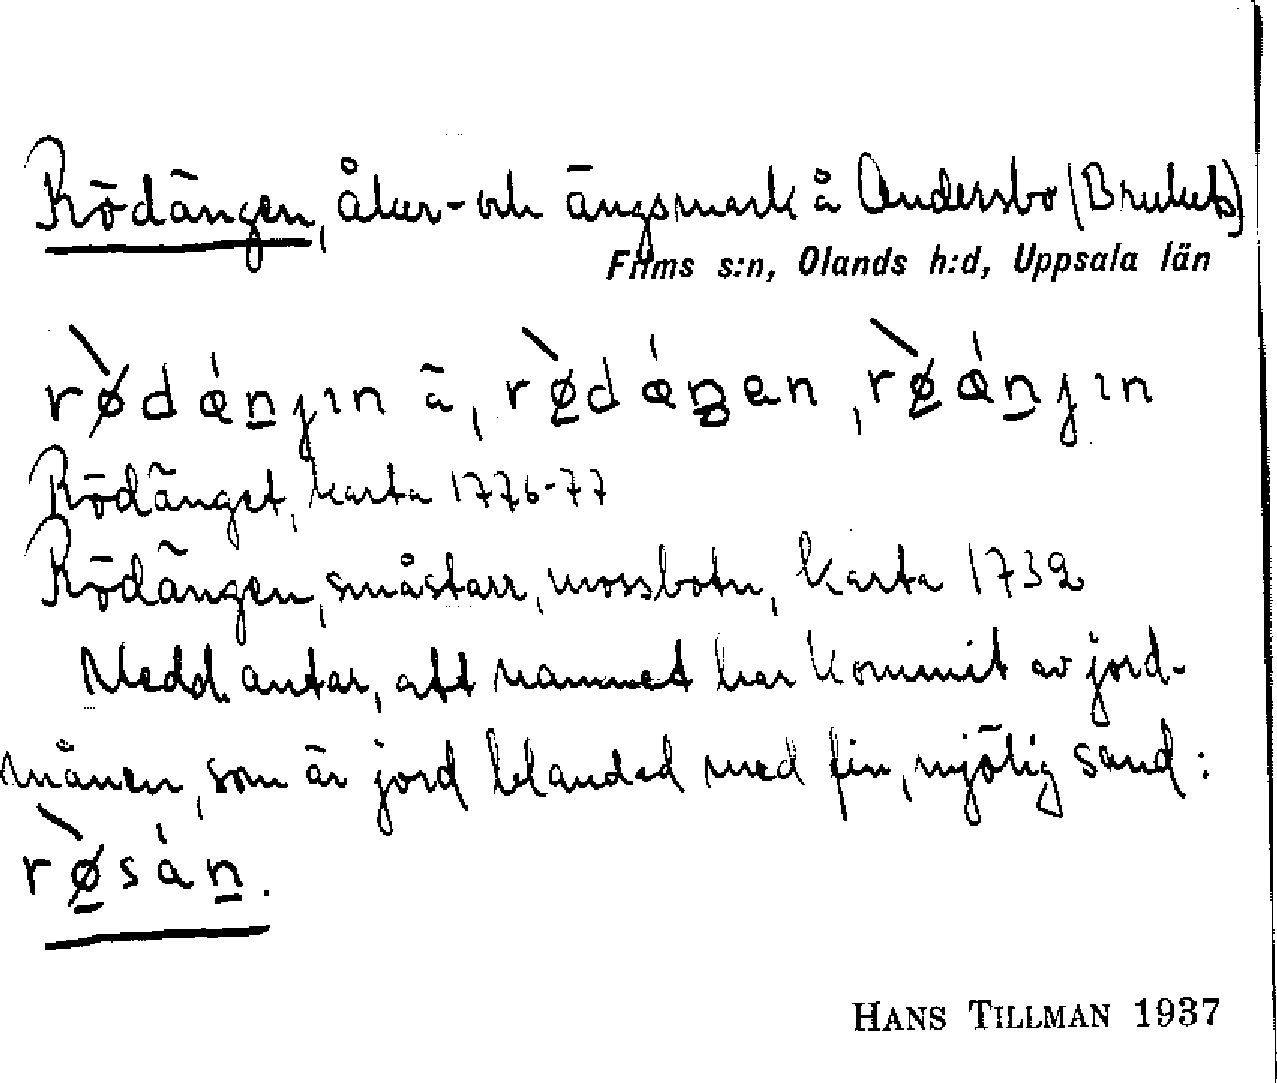 Rödängen, åker- och ängsmark å Andersbo (Brukets)
Films s:n, Olands h:d, Uppsala län
rø̀dǽnjın ä, rø̀dǽŋen, rø̀ǽnjın
Rödänget, karta 1776-77
Rödängen, småstarr, mossbotn, karta 1732
Medd. antar, att namnet har kommit av jord-
månen, som är jord blandad med fin, mjölig sand:
rø̀sán.
HANS TILLMAN 1937